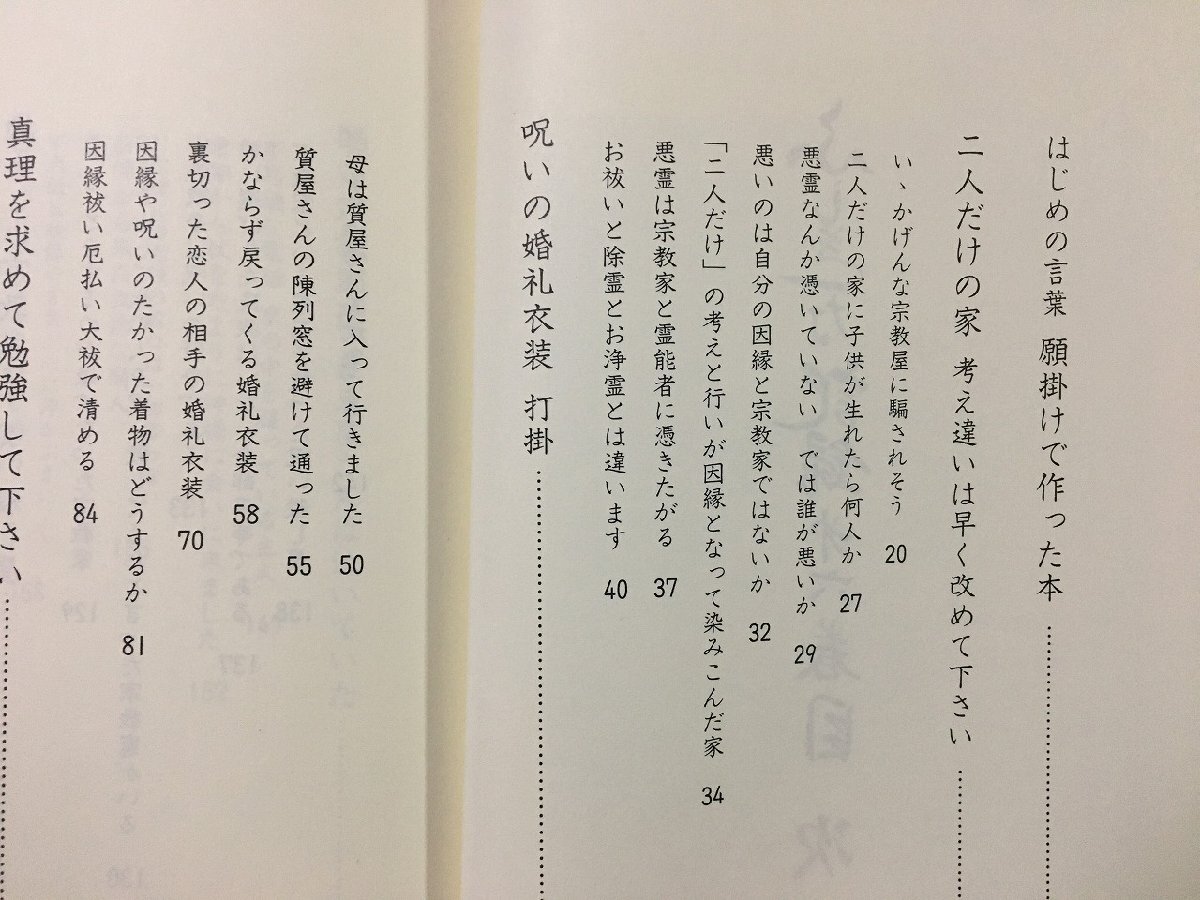 はじめの言葉　願掛けで作った本……………
二人だけの家　考え違いは早く改めて下さい……………
いゝかげんな宗教屋に騙されそう　20
二人だけの家に子供が生れたら何人か　27
悪霊なんか憑いていない　では誰が悪いか　29
悪いのは自分の因縁と宗教家ではないか　32
「二人だけ」の考えと行いが因縁となって染みこんだ家　34
悪霊は宗教家と霊能者に憑きたがる　37
お祓いと除霊とお浄霊とは違います　40
呪いの婚礼衣装　打掛……………
母は質屋さんに入って行きました　50
質屋さんの陳列窓を避けて通った　55
かならず戻ってくる婚礼衣装　58
裏切った恋人の相手の婚礼衣装　70
因縁や呪いのたかった着物はどうするか　81
因縁祓い厄払い大祓で清める　84
真理を求めて勉強して下さい……………